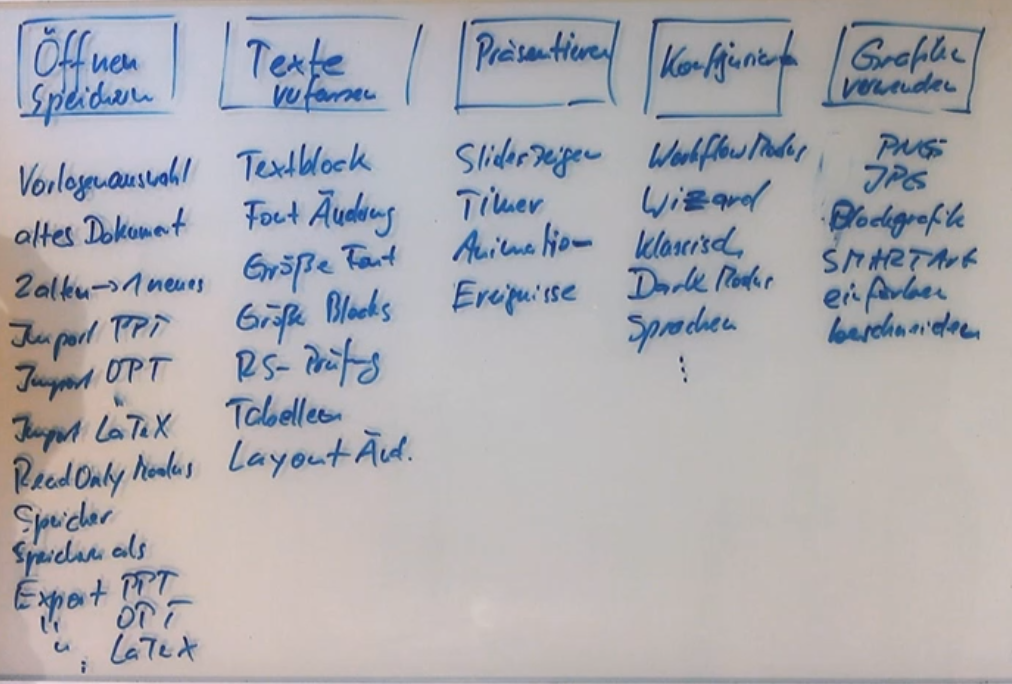 Öffnen
Speichern
Vorlagenauswahl
altes Dokument
2 alten → 1 neues
Import PPT
Import OPT
Import LaTeX
ReadOnly Modus
Speicher
Speichern als
Export PPT
" OPT
" LaTeX
Texte
verfassen
Textblock
Font Änderung
Größe Font
Größe Blocks
RS-Prüfung
Tabellen
Layout Änd.
Präsentieren
Slides zeigen
Timer
Animation
Ereignisse
Konfigurieren
Workflow Modus
Wizard
klassisch
Dark Modus
Sprachen
⋮
Grafiken
verwenden
PNG
JPG
Blockgrafik
SMARTArt
einfärben
beschneiden